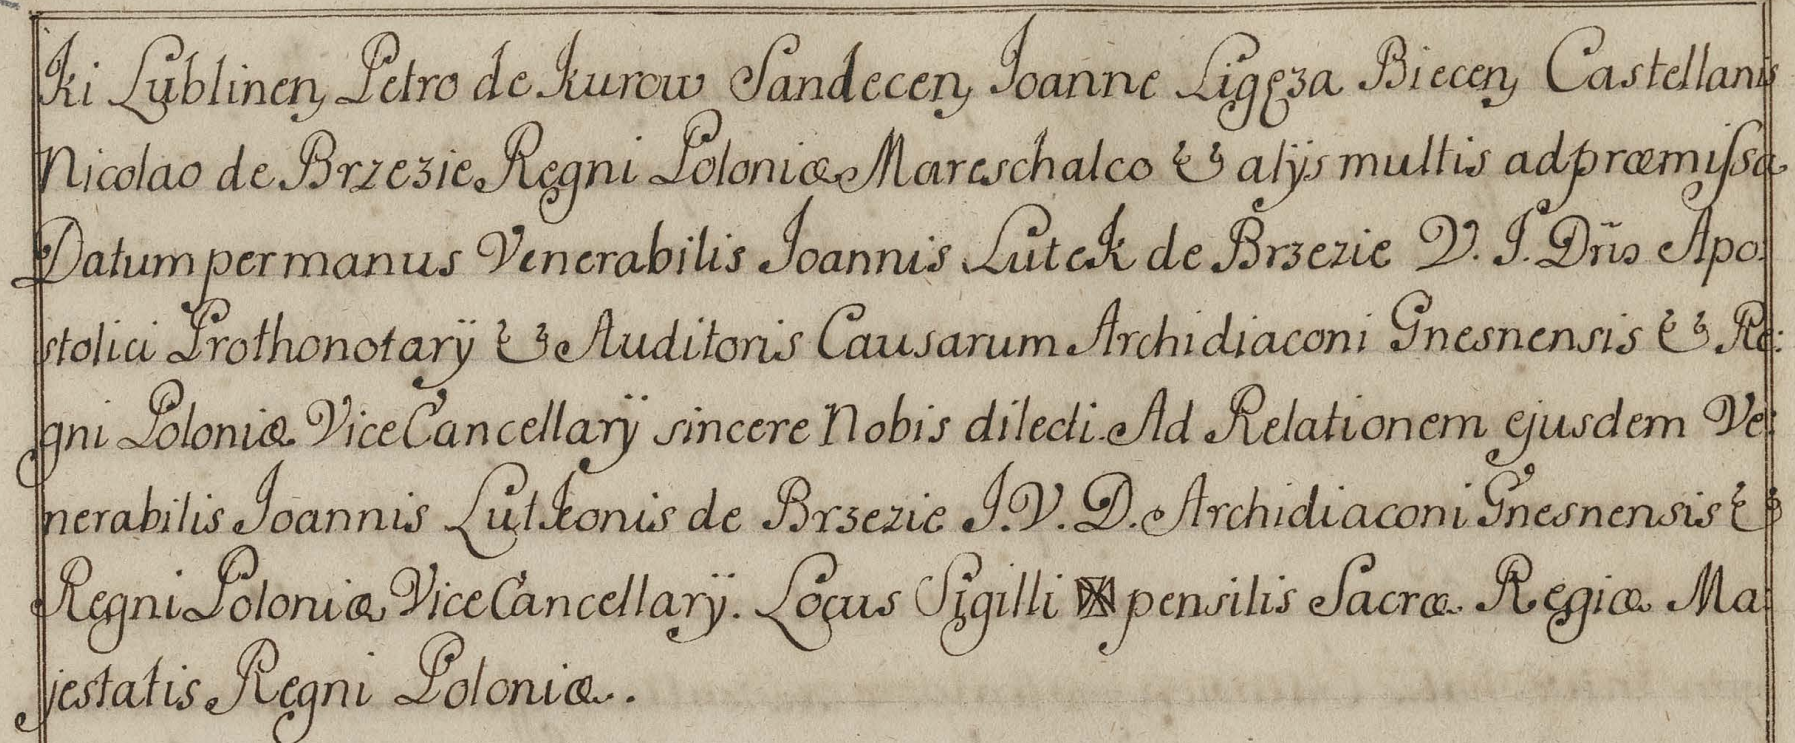 Ki Lublinen, Petro de Kurow Sandecen, Joanne Ligęza Biecen, Castellanis
Nicolao de Brzezie Regni Poloniæ Mareschalco & alÿs multis ad præmiſsa
Datum per manus Venerabilis Joannis Lutek de Brzezie V. J. Dris Apo:
stolici Prothonotarÿ & Auditoris Causarum Archidiaconi Gnesnensis & Re:
gni Poloniæ ViceCancellarÿ sincere Nobis dilecti. Ad Relationem ejusdem Ve:
nerabilis Joannis Lutkonis de Brzezie J. V. D. Archidiaconi Gnesnensis &
Regni Poloniæ ViceCancellarÿ. Locus Sigilli pensilis Sacræ Regiæ Ma:
jestatis Regni Poloniæ.